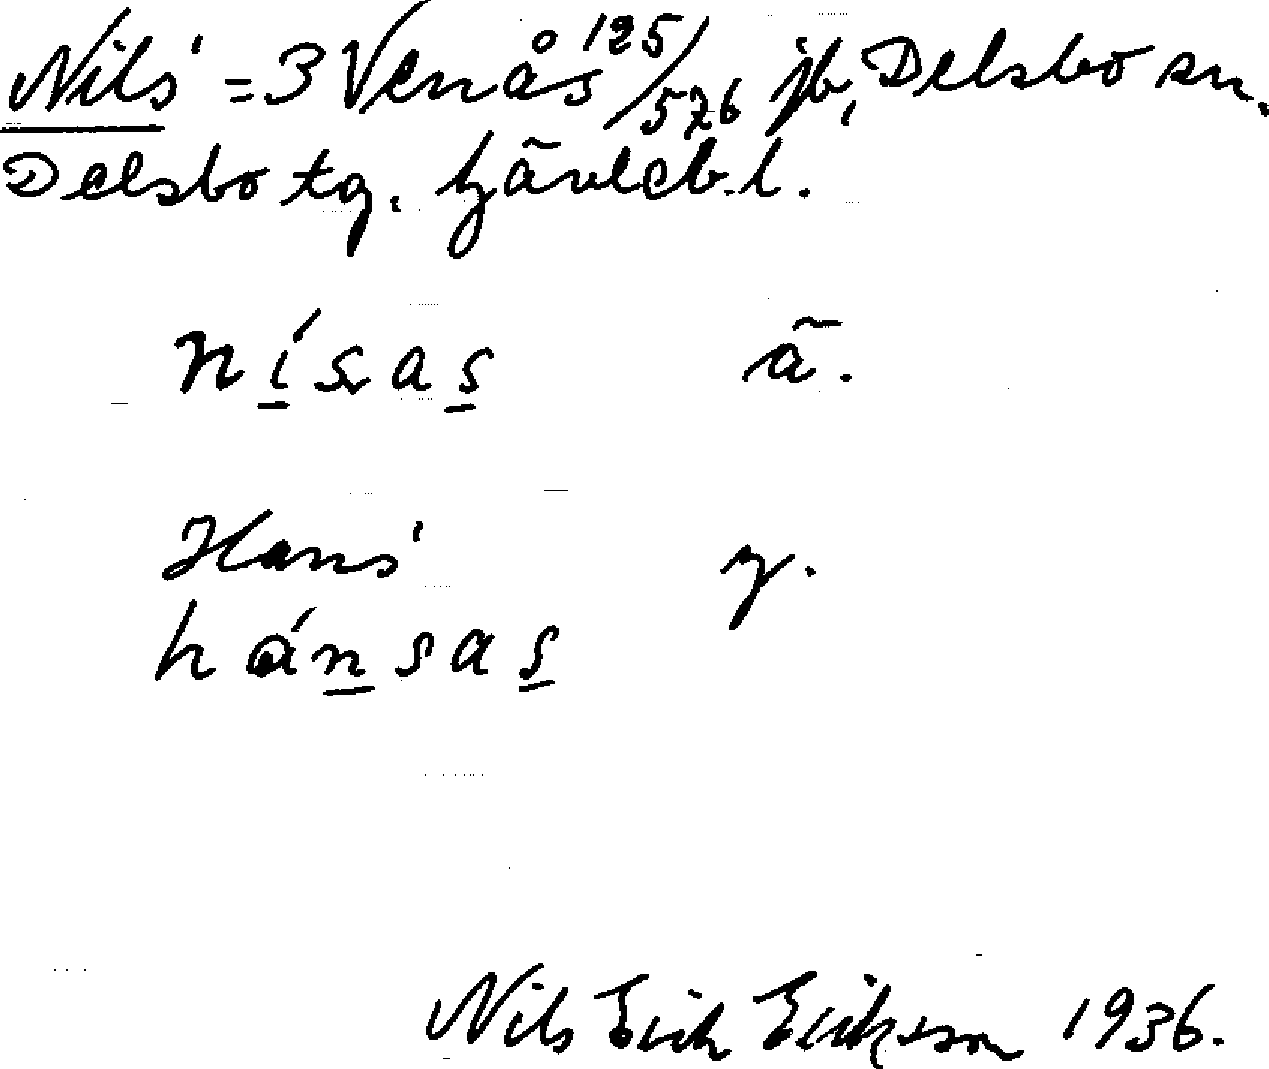 Nils' = 3 Venås 125/576 jb, Delsbo sn.
Delsbo tg. Gävleb. l.
nísas ä.
Hans' y.
hánsas
Nils Erik Erikson 1936.